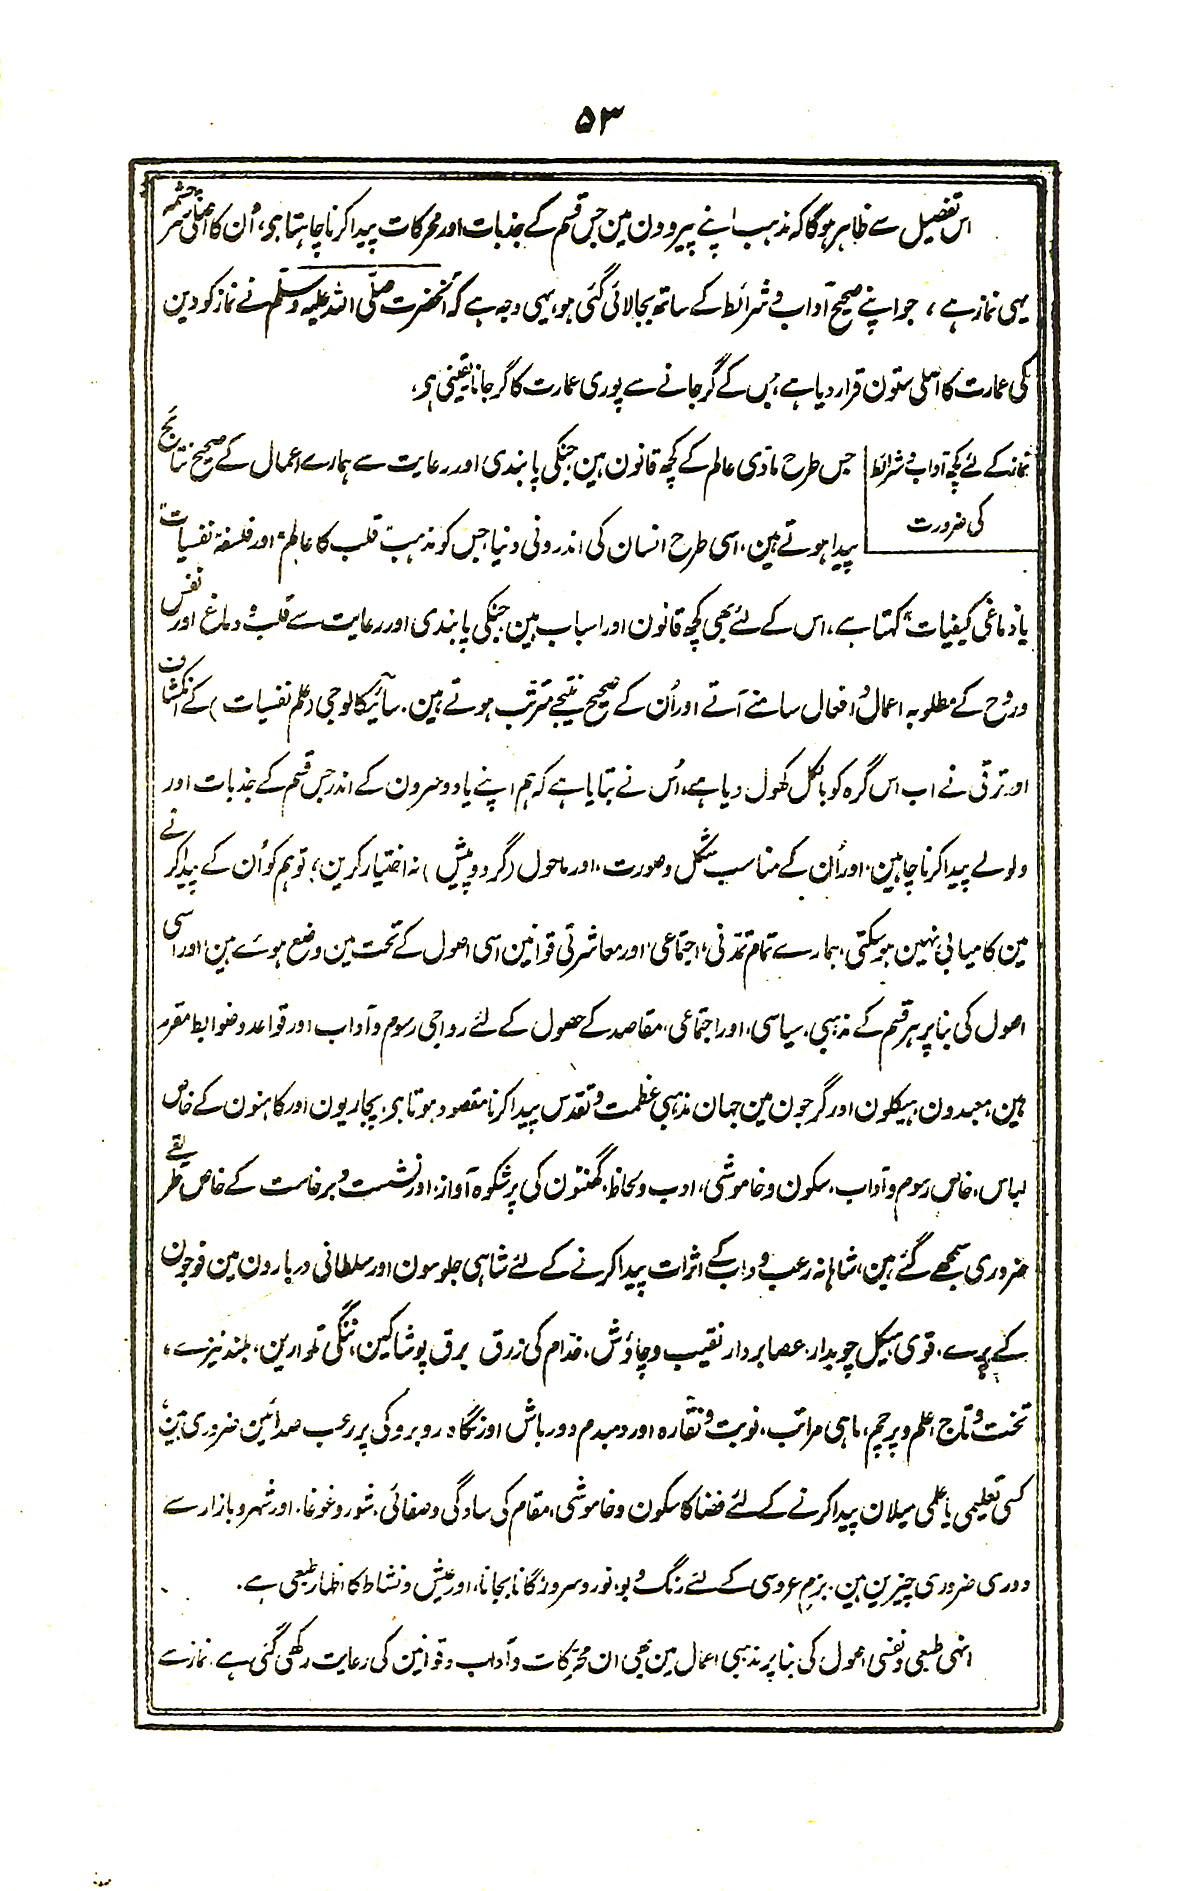 ۵۳
اس تفصیل سے ظاہر ہوگا کہ مذہب اپنے پیروون مین جس قسم کے جذبات اور محرکات پیدا کرنا چاہتا ہی، اُن کا اصلی سرچشمہ
یہی نماز ہے، جو اپنے صحیح آداب و شرائط کے ساتھ بجا لائی گئی ہو، یہی وجہ ہے کہ آنحضرت صلّی اللہ علیہ وسلّم نے نماز کو دین
کی عمارت کا اصلی ستون قرار دیا ہے، جس کے گر جانے سے پوری عمارت کا گر جانا یقینی ہی،
نماز کے لئے کچھ آداب و شرائط
کی ضرورت
جس طرح مادّی عالم کے کچھ قانون ہین جنکی پابندی اور رعایت سے ہمارے اعمال کے صحیح نتائج
پیدا ہوتے ہین، اسی طرح انسان کی اندرونی دنیا جس کو مذہب "قلب کا عالم" اور فلسفہ "نفسیات"
یا "دماغی کیفیات" کہتا ہے، اس کے لئے بھی کچھ قانون اور اسباب ہین جنکی پابندی اور رعایت سے قلب و دماغ اور نفس
و روح کے مطلوبہ اعمال و افعال سامنے آتے اور اُن کے صحیح نتیجے مترتب ہوتے ہین، سائیکالوجی (علم نفسیات) کے انکشاف
اور ترقی نے اب اس گرہ کو بالکل کھول دیا ہے، اُس نے بتایا ہے کہ ہم اپنے یا دوسرون کے اندر جس قسم کے جذبات اور
ولولے پیدا کرنا چاہین، اور اُن کے مناسب شکل و صورت، اور ماحول (گرد و پیش) نہ اختیار کرین، تو ہم کو اُن کے پیدا کرنے
مین کامیابی نہین ہوسکتی، ہمارے تمام تمدّنی، اجتماعی، اور معاشرتی قوانین اسی اصول کے تحت مین وضع ہوئے ہین، اور اسی
اصول کی بنا پر ہر قسم کے مذہبی، سیاسی، اور اجتماعی، مقاصد کے حصول کے لئے رواجی رسوم و آداب اور قواعد و ضوابط مقرر
ہین، معبدون، ہیکلون اور گرجون مین جہان مذہبی عظمت و تقدس پیدا کرنا مقصود ہوتا ہی، پجاریون اور کاہنون کے خاص
لباس، خاص رسوم و آداب، سکون و خاموشی، ادب و لحاظ، گھنٹون کی پرشکوہ آواز، اور نشست و برخاست کے خاص طریقے
ضروری سمجھے گئے ہین، شاہانہ رعب و داب کے اثرات پیدا کرنے کے لئے شاہی جلوسون اور سلطانی دربارون مین فوجون
کے پرے، قوی ہیکل چوبدار، عصا بردار نقیب و چاؤش، خدّام کی زرق برق پوشاکین، ننگی تلوارین، بلند نیزے،
تخت و تاج، علم و پرچم، ماہی مراتب، نوبت و نقارہ اور دمبدم دور باش اور نگاہ روبرو کی پر رعب صدائین ضروری ہین،
کسی تعلیمی یا علمی میلان پیدا کرنے کے لئے فضا کا سکون و خاموشی، مقام کی سادگی و صفائی، شور و غوغا، اور شہر و بازار سے
دوری ضروری چیزین ہین، بزم عروسی کے لئے رنگ و بو، نور و سرور، گانا بجانا، اور عیش و نشاط کا اظہار طبعی ہے،
انہی طبعی و نفسی اصول کی بنا پر مذہبی اعمال مین بھی ان محرّکات و آداب و قوانین کی رعایت رکھی گئی ہے، نماز سے